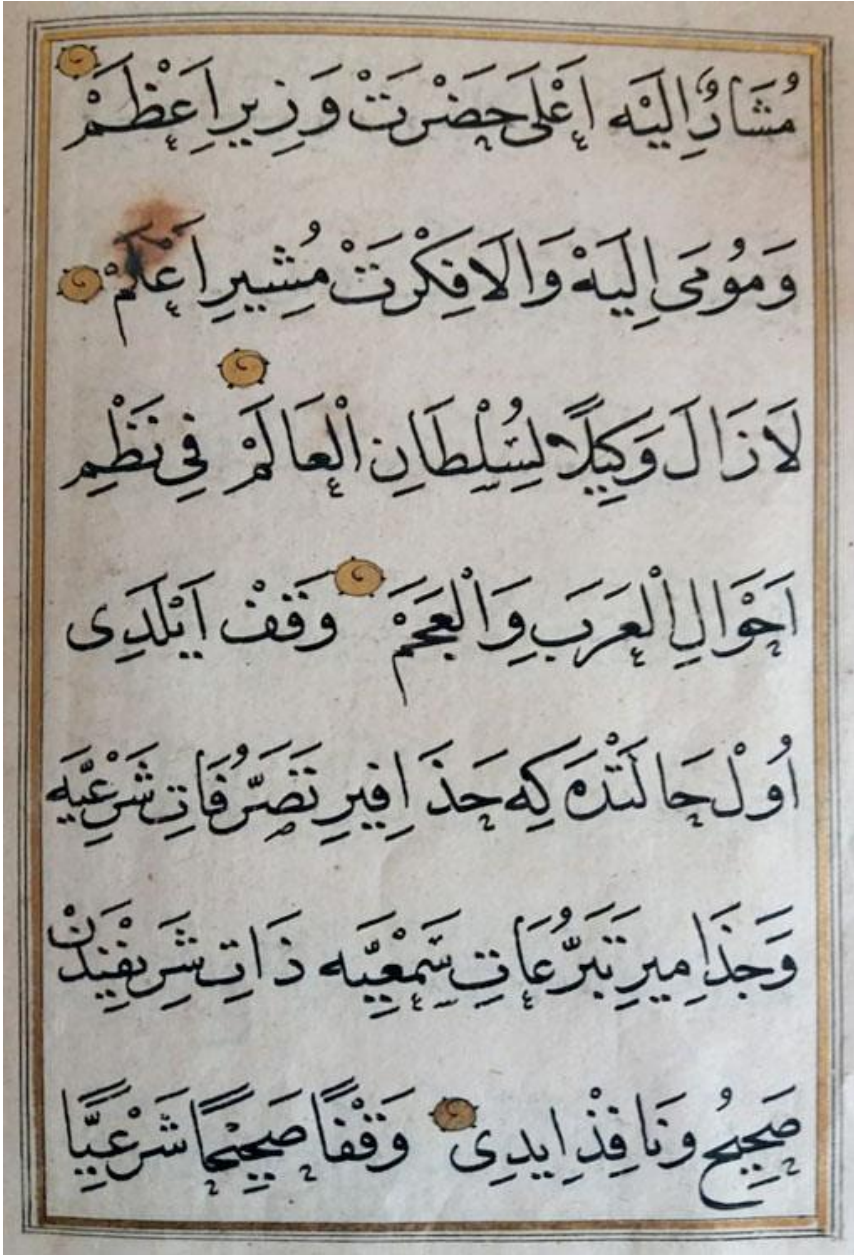 مُشَارٌ اِلَيْه اَعْلٰى حَضْرَتْ وَزِيرِ اَعْظَمْ
وَمُومَى اِلَيَهْ وَالَا فِكْرَتْ مُشِيرِ اَعْلَمْ
لَازَالَ وَكِيلًا لِسُلْطَانِ الْعَالَمْ فِي نَظْمِ
اَحْوَالِ الْعَرَبِ وَالْعَجَمْ وَقْفْ اَيْلَدِى
اُولْ حَالَتْدَه كِه حَذَافِيرِ تَصَرُّفَاتِ شَرْعِيَّه
وَجَذَامِيرِ تَبَرُّعَاتِ سَمْعِيَّه ذَاتِ شَرِيفِيْنَدَنْ
صَحِيحُ وَنَافِذْ اِيدِى وَقْفًا صَحِيْحًا شَرْعِيًّا